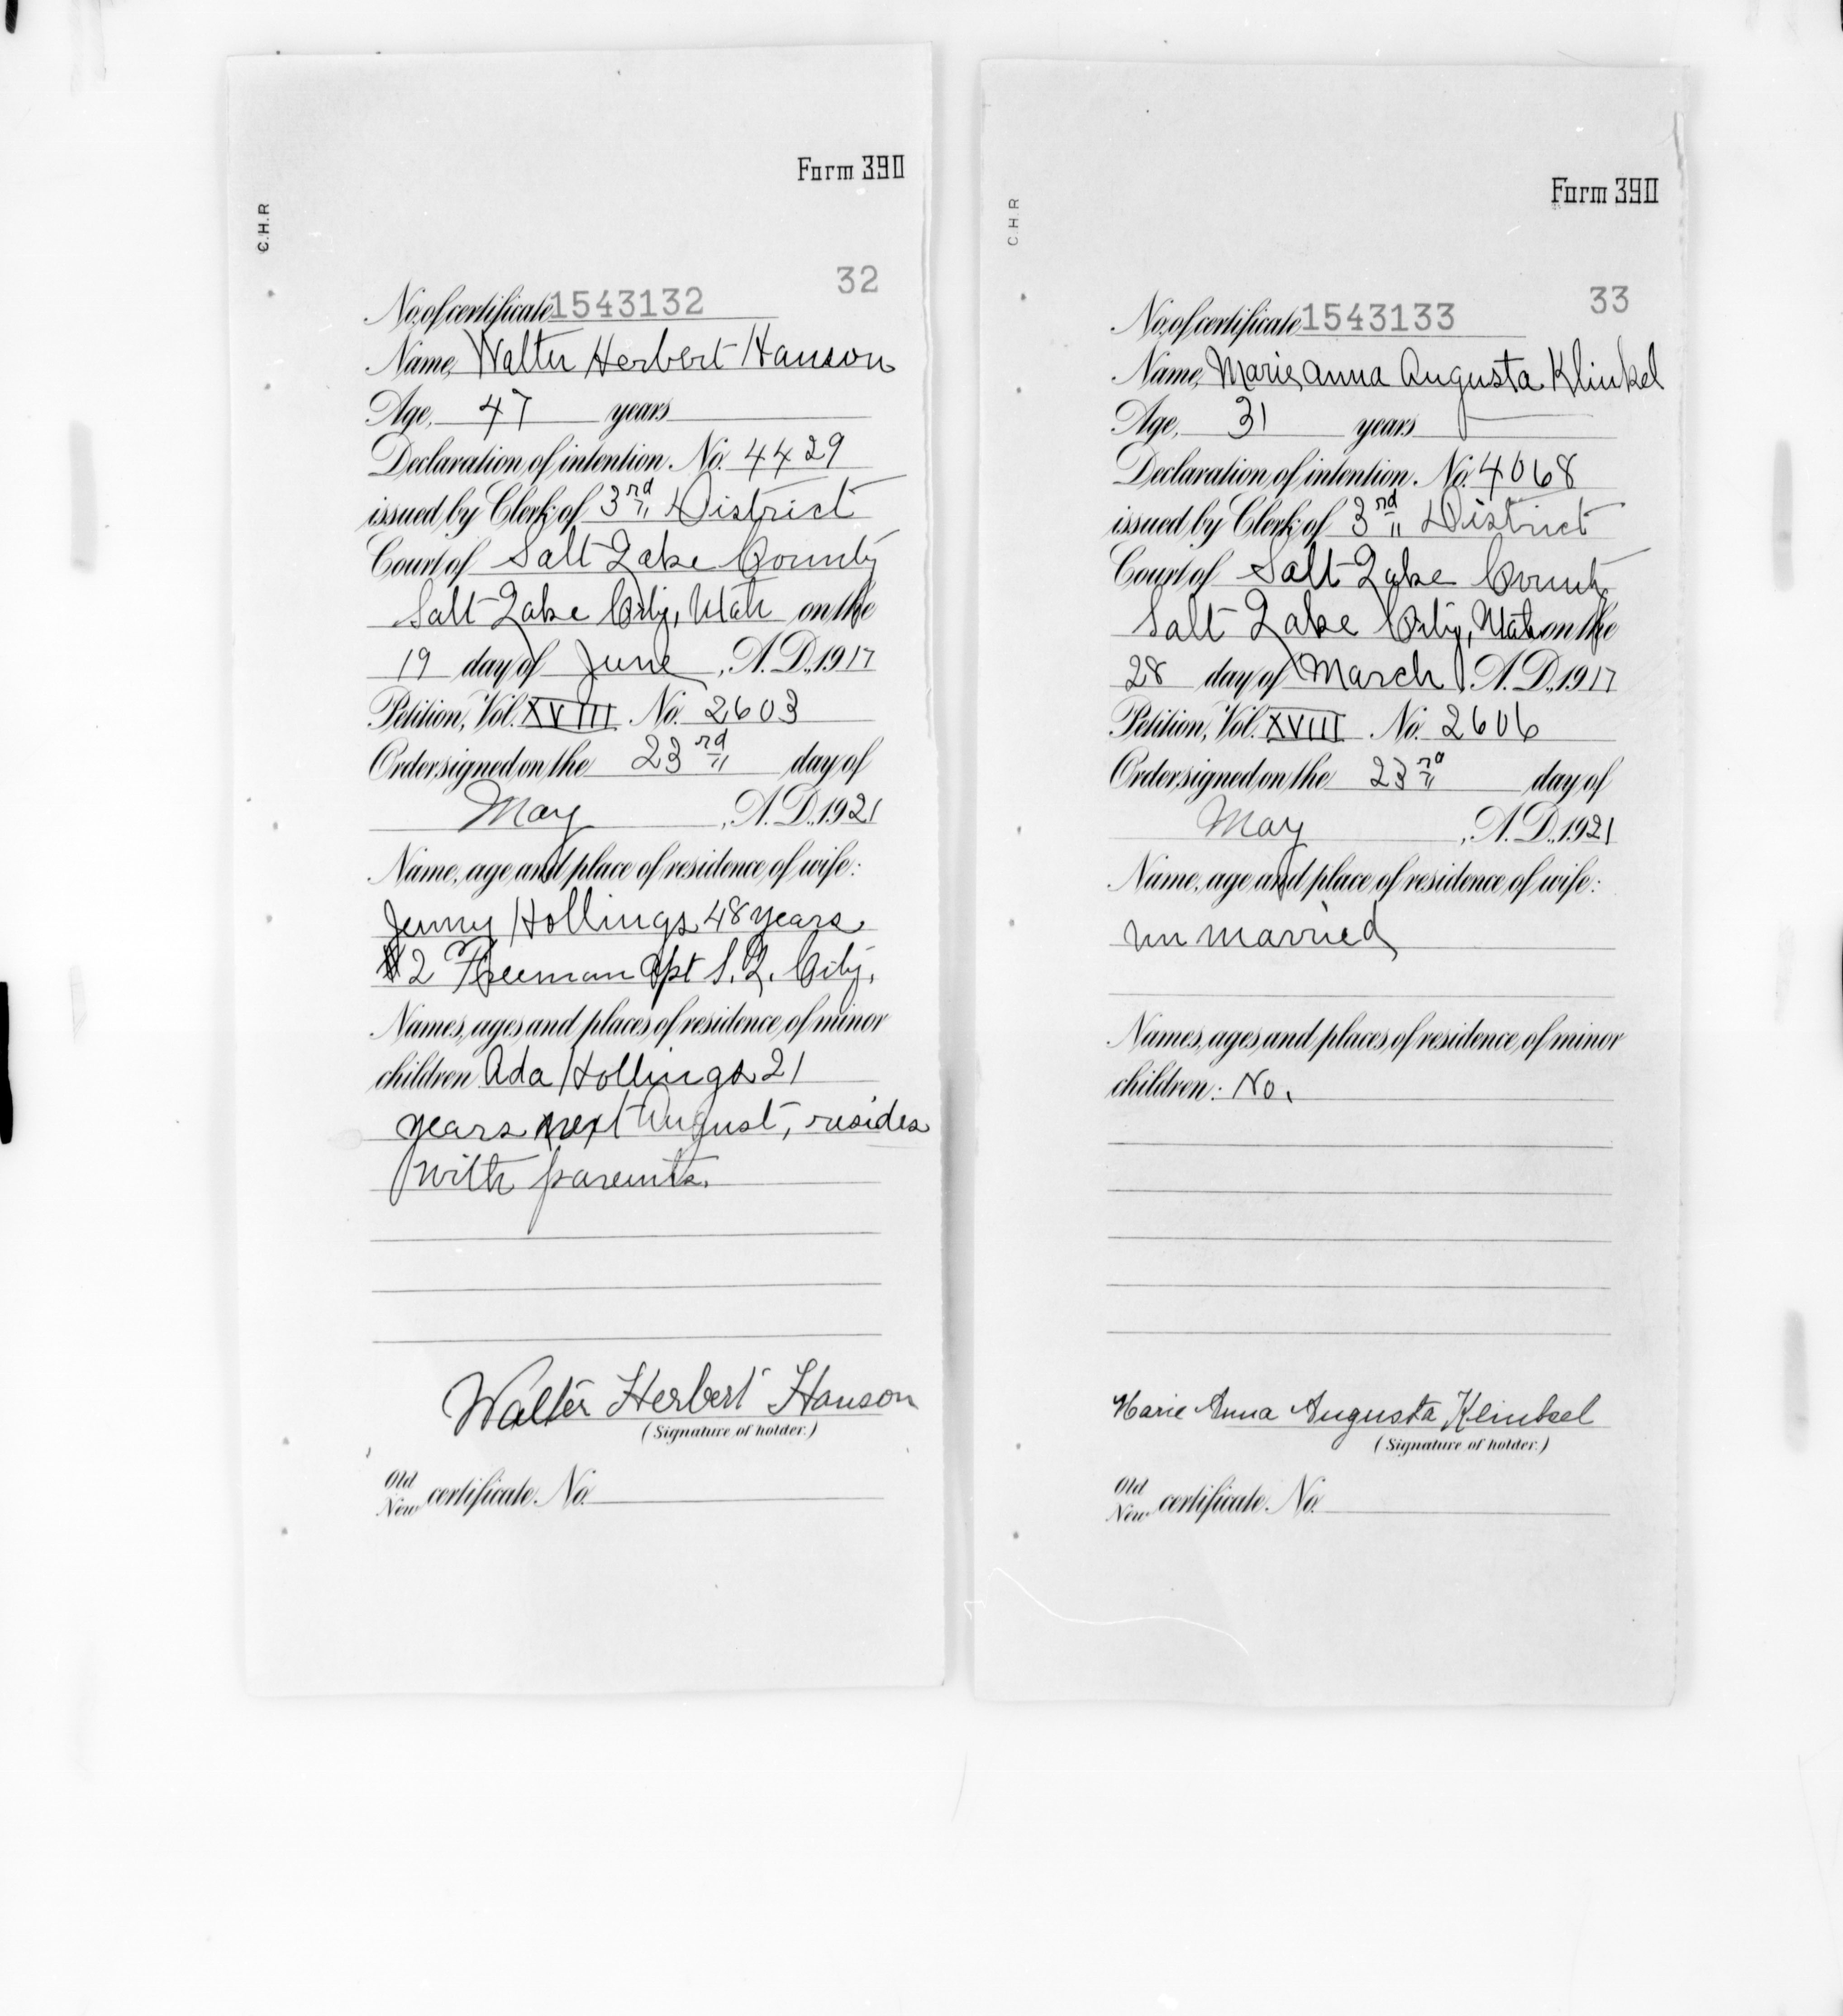 Form 390
C.H.R
32
No. of certificate 1543132
Name, Walter Herbert Hanson
Age, 47 years
Declaration of intention. No. 4429
issued by Clerk of 3rd District
Court of Salt Lake County
Salt Lake City, Utah on the
19 day of June, A.D. 1917
Petition, Vol. XVIII No. 2603
Order signed on the 23rd day of
May, A.D. 1921
Name, age and place of residence of wife:
Jenny Hollings 48 years
#2 Freeman Apt S. L. City.
Names, ages and places of residence of minor
children Ada Hollings 21
years next August, resides
with parents.
Walter Herbert Hanson
(Signature of holder.)
Old
New certificate No.
Form 390
C.H.R
33
No. of certificate 1543133
Name, Marie Anna Augusta Klinkel
Age, 31 years
Declaration of intention. No. 4068
issued by Clerk of 3rd District
Court of Salt Lake County
Salt Lake City, Utah on the
28 day of March, A.D. 1917
Petition, Vol. XVIII No. 2606
Order signed on the 23rd day of
May, A.D. 1921
Name, age and place of residence of wife:
un married
Names, ages and places of residence of minor
children: No.
Marie Anna Augusta Klinkel
(Signature of holder.)
Old
New certificate No.